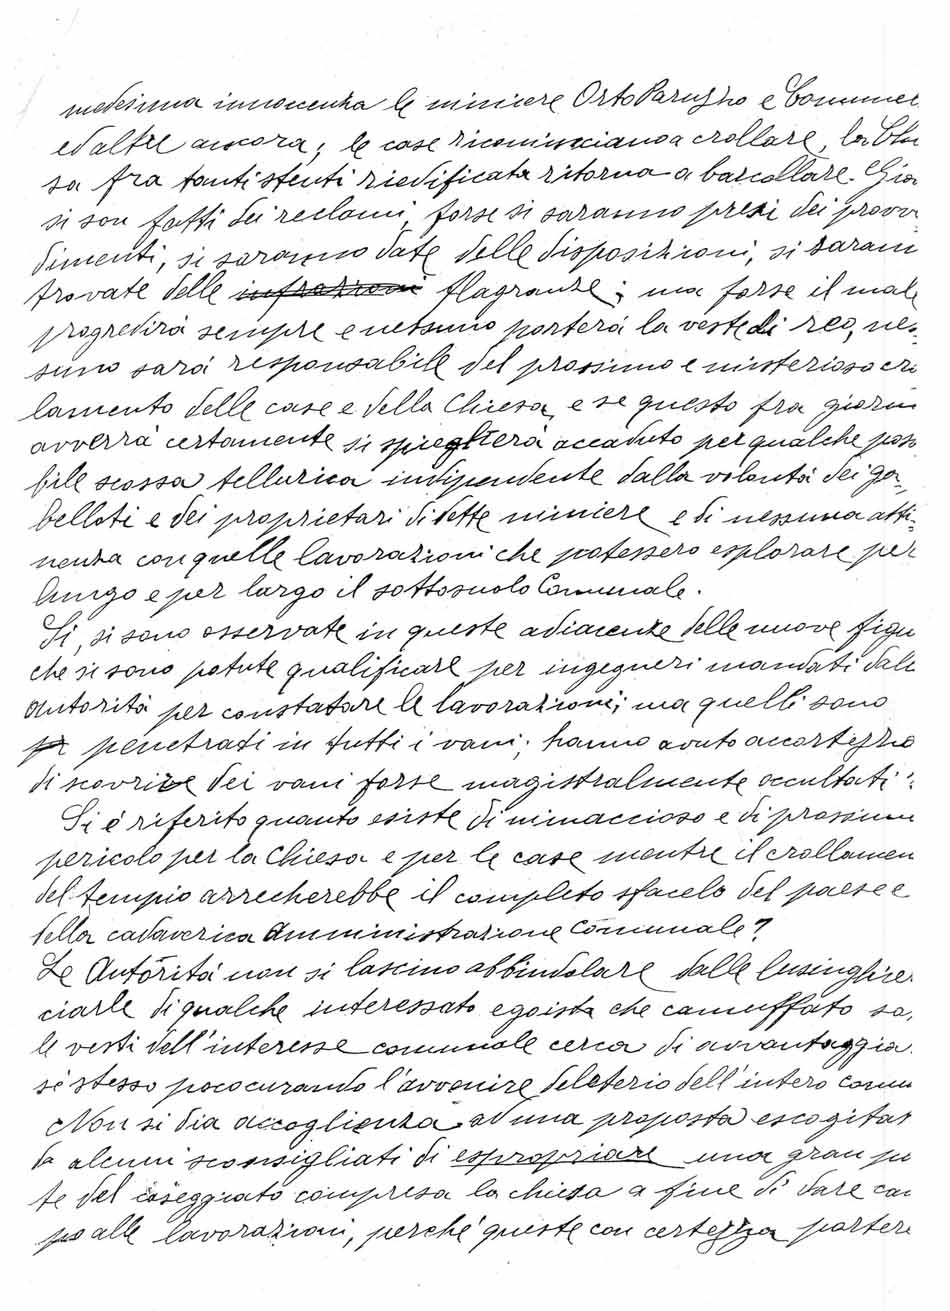 medesima innocenza le miniere Orto Paruzzo e Comunel
ed altre ancora; le case ricominciano a crollare, la Chie
sa fra tanti stenti riedificata ritorna a barcollare. Già
si son fatti dei reclami, forse si saranno presi dei provv
dimenti, si saranno date delle disposizioni, si saran
trovate delle infrazioni flagranze; ma forse il male
progredirà sempre e nessuno porterà la veste di reo, nes-
suno sarà responsabile del prossimo e misterioso cro
lamento delle case e della Chiesa, e se questo fra giorni
avverrà certamente si spiegherà accaduto per qualche poss
bile scossa tellurica indipendente dalla volontà dei ga-
belloti e dei proprietari di dette miniere e di nessuna atti-
nenza con quelle lavorazioni che potessero esplorare per
lungo e per largo il sottosuolo Comunale.
Sì, si sono osservate in queste adiacenze delle nuove figu
che si sono potute qualificare per ingegneri mandati dalle
autorità per constatare le lavorazioni; ma quelli sono
penetrati in tutti i vani; hanno avuto accortezza
di scovrire dei vani forse magistralmente occultati?
Si è riferito quanto esiste di minaccioso e di prossimo
pericolo per la Chiesa e per le case mentre il crollamen
del tempio arrecherebbe il completo sfacelo del paese e
della cadaverica Amministrazione Comunale?
Le Autorità non si lascino abbindolare dalle lusinghiere
ciarle di qualche interessato egoista che camuffato so,
le vesti dell'interesse comunale cerca di avvantaggia
sé stesso poco curando l'avvenire deleterio dell'intero comu
Non si dia accoglienza ad una proposta escogitat
da alcuni sconsigliati di espropriare una gran pa
te del caseggiato compresa la chiesa a fine di dare cam
po alle lavorazioni, perché queste con certezza porter